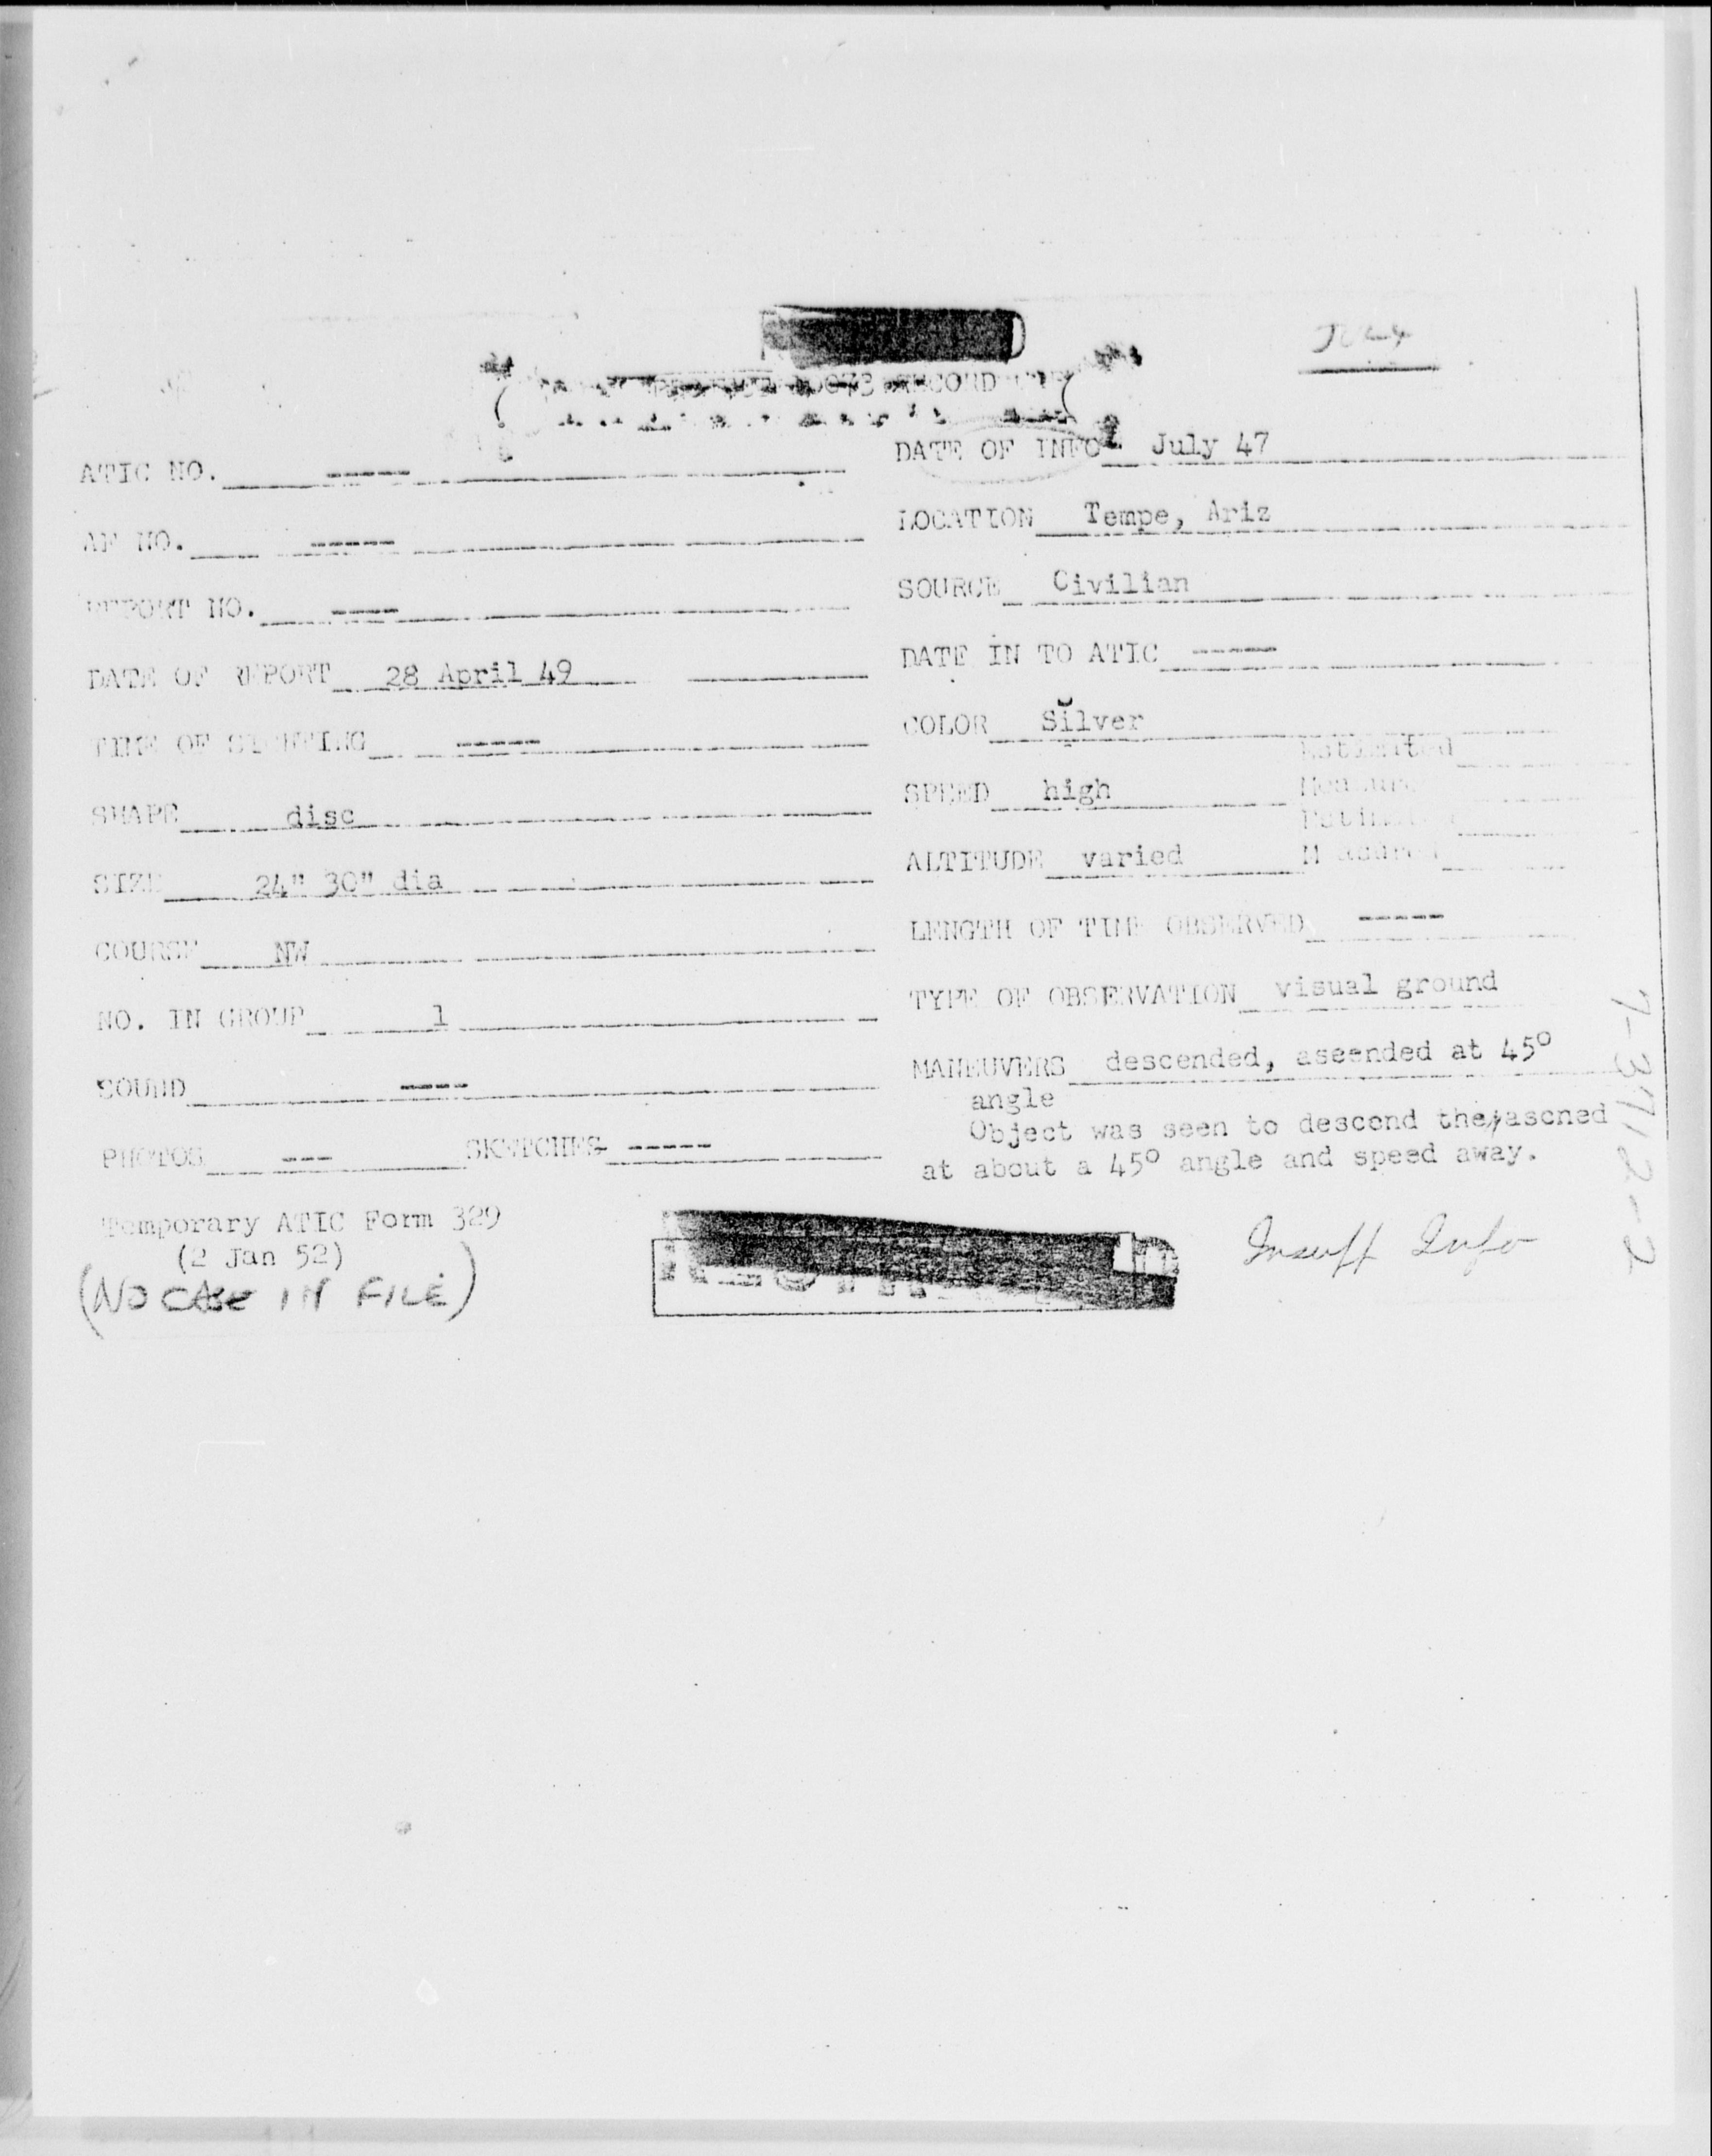 July
10073 RECORD
ATIC NO. ----
DATE OF INFO July 47
AF NO. -----
LOCATION Tempe, Ariz
REPORT NO. ----
SOURCE Civilian
DATE OF REPORT 28 April 49
DATE IN TO ATIC -----
TIME OF SIGHTING -----
COLOR Silver
Estimated
SHAPE disc
SPEED high
Measured
Estimated
SIZE 24" 30" dia
ALTITUDE varied
Measured
COURSE NW
LENGTH OF TIME OBSERVED -----
NO. IN GROUP 1
TYPE OF OBSERVATION visual ground
SOUND ----
MANEUVERS descended, aseended at 45°
angle
PHOTOS --- SKETCHES -----
Object was seen to descend then ascned
at about a 45° angle and speed away.
Temporary ATIC Form 329
(2 Jan 52)
(NO CASE IN FILE)
Insuff Info
7-3712-2